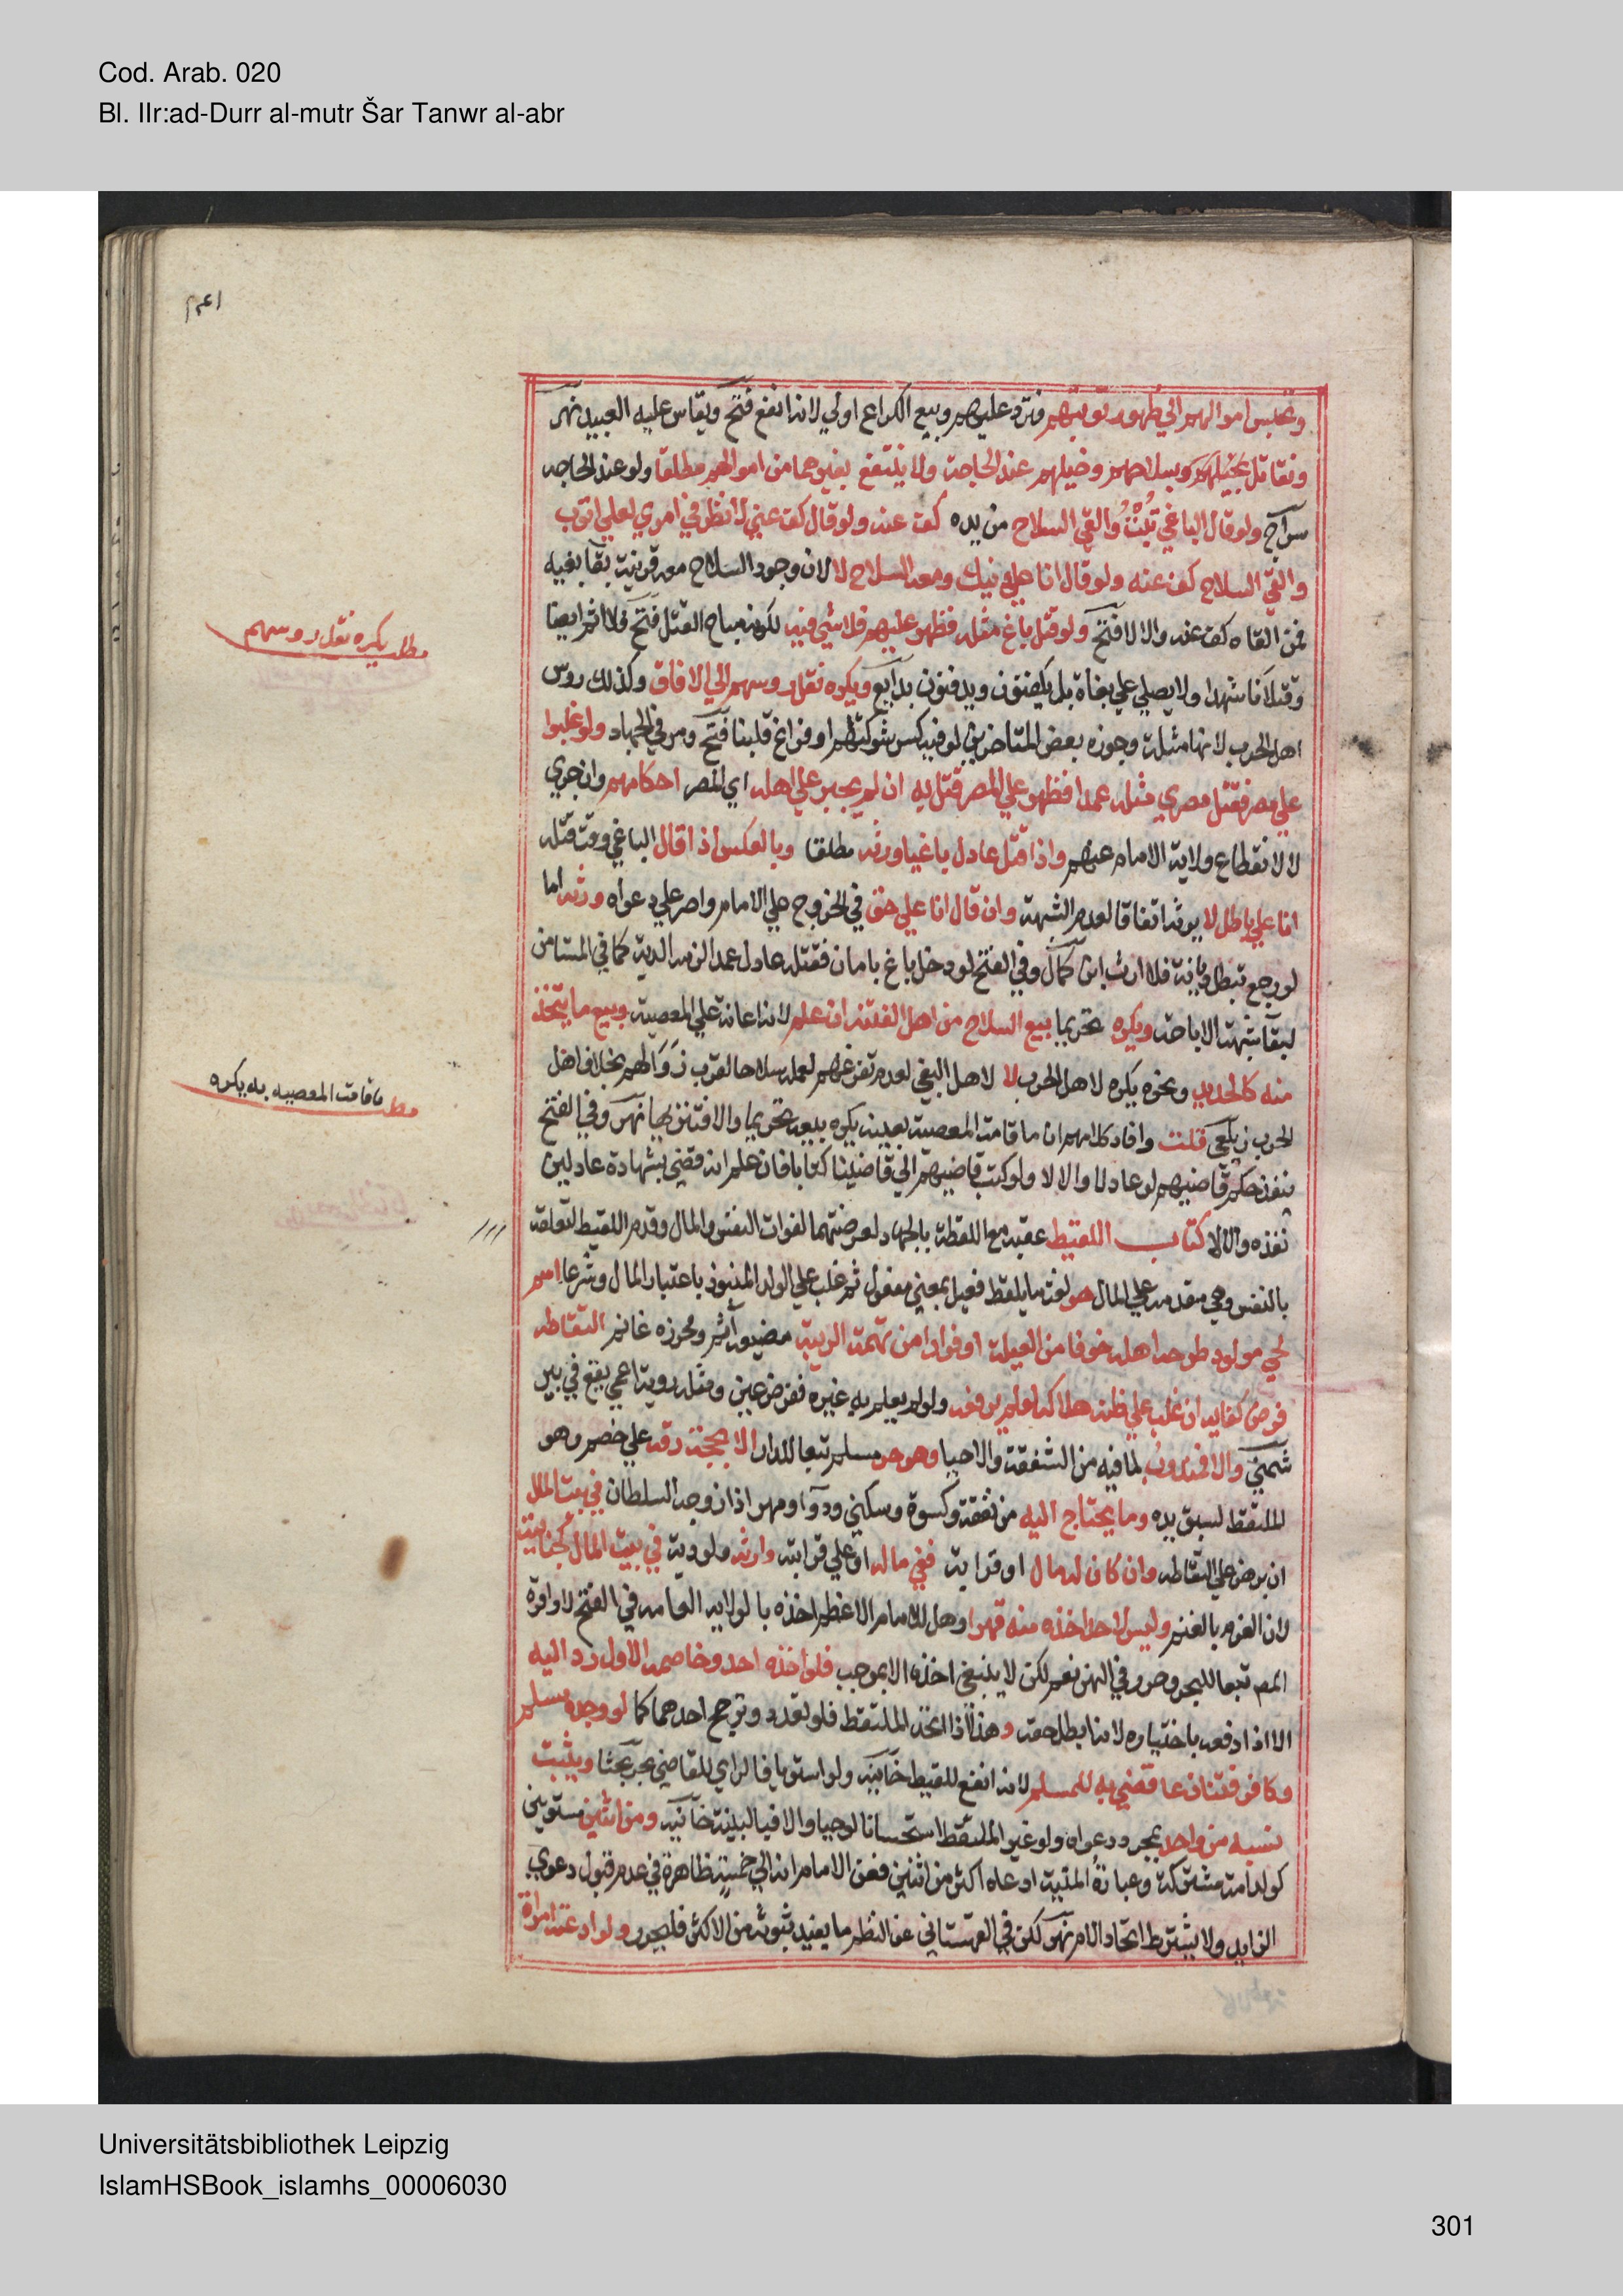 Cod. Arab. 020
Bl. IIr:ad-Durr al-mutr Šar Tanwr al-abr
وتحبس اموالهم الي ظهور توبتهم فترد عليهم وبيع الكراع اولي لانه انفع فتح ويقاس عليه العبيد نهر
ونقاتل بخيلهم وبسلاحهم وخيلهم عند الحاجة ولا ينتفع بغيرهما من اموالهم مطلقا ولو عند الحاجه
سراج ولو قال الباغي تبت والقي السلاح من يده كف عنه ولو قال كف عني لانظر في امري لعلي اتوب
والقي السلاح كف عنه ولو قال انا علي دينك ومعه السلاح لا لان وجود السلاح معه قرينة بقا بغيه
فمتي القاه كف عنه والا لا فتح ولو قتل باغ مثله فظهر عليهم فلا شي فيه لكونه مباح القتل فتح فلا اثم ايضا
وقتلانا شهدا ولا يصلي علي بغاة بل يكفنون ويدفنون بدايع ويكره نقل روسهم الي الافاق وكذلك روس
اهل الحرب لانها مثلة وجوزه بعض المتاخرين لو فيه كسر شوكتهم او فراغ قلبنا فتح ومر في الجهاد ولو غلبوا
علي مصر فقتل مصري مثله عمدا فظهر علي المصر قتل به ان لم يجر علي اهله اي المصر احكامهم وان جري
لا لانقطاع ولاية الامام عنهم واذا قتل عادل باغيا ورثه مطلقا وبالعكس اذا قال الباغي وقت قتله
انا علي باطل لا يرثه اتفاقا لعدم الشبهة وان قال انا علي حق في الخروج علي الامام واصر علي دعواه ورثه اما
لو رجع تبطل ديانته فلا ارث ابن كمال وفي الفتح لو دخل باغ بامان فقتله عادل عمدا لزمه الدية كما في المستامن
لبقا شبهة الاباحة ويكره تحريما بيع السلاح من اهل الفتنة ان علم لانه اعانة علي المعصية وبيع ما يتخذ
منه كالحديد ونحوه يكره لاهل الحرب لا لاهل البغي لعدم تفرغهم لعمله سلاحا لقرب زوالهم بخلاف اهل
الحرب زيلعي قلت وافاد كلامهم ان ما قامت المعصية بعينه يكره بيعه تحريما والا فتنزيها نهر وفي الفتح
ينفذ حكم قاضيهم لو عادلا والا لا ولو كتب قاضيهم الي قاضينا كتابا فان علم انه قضي بشهادة عادلين
نفذه والا لا كتاب اللقيط عقبه مع اللقطة بالجهاد لعرضتهما لفوات النفس والمال وقدم اللقيط لتعلقه
بالنفس وهي مقدمه علي المال هو لغة ما يلقط فعيل بمعني مفعول ثم غلب علي الولد المنبوذ باعتبار المال وشرعا اسم
لحي مولود طرحه اهله خوفا من العيلة او فرارا من تهمة الريبة مضيعه اثم ومحرزه غانم التقاطه
فرض كفايه ان غلب علي ظنه هلاكه لو لم يرفعه ولو لم يعلم به غيره ففرض عين ومثله روية اعمي يقع في بير
شمني والا فمندوب لما فيه من الشفقة والاحيا وهو حر مسلم تبعا للدار الا بحجة رقه علي خصم وهو
الملتقط لسبق يده وما يحتاج اليه من نفقة وكسوة وسكني ودوا ومهر اذا زوجه السلطان في بيت المال
ان برهن علي التقاطه وان كان له مال او قرابة ففي ماله او علي قرابته وارثه ولو دية في بيت المال كجنايته
لان الغرم بالغنم وليس لاحد اخذه منه قهرا وهل للامام الاعظم اخذه بالولاية العامه في الفتح لا واقره
المصـ تبعا للبحر وحرر في النهر نعم لكن لا ينبغي اخذه الا بموجب فلو اخذه احد وخاصمه الاول رد اليه
الا اذا دفعه باختياره لانه ابطل حقه وهذا اذا اتحد الملتقط فلو تعدد وترجح احدهما كما لو وجده مسلم
وكافر فتنازعا قضي به للمسلم لانه انفع للقيط خانية ولو استويا فالراي للقاضي بحر بحثا ويثبت
نسبه من واحد بمجرد دعواه ولو غير الملتقط استحسانا لو حيا والا فبالبينة خانية ومن اثنين مستويين
كولد امة مشتركة وعبارة المنية ادعاه اكثر من اثنين فعن الامام انه الي خمسة ظاهرة في عدم قبول دعوي
الزايد ولا يشترط اتحاد الام نهر لكن في القهستاني عن النظم ما يفيد ثبوته من الاكثر فليحرر ولو ادعته امراة
مطلـ يكره نقل روسهم
مطـ ما قامت المعصيه به يكره
Universitätsbibliothek Leipzig
IslamHSBook_islamhs_00006030
301